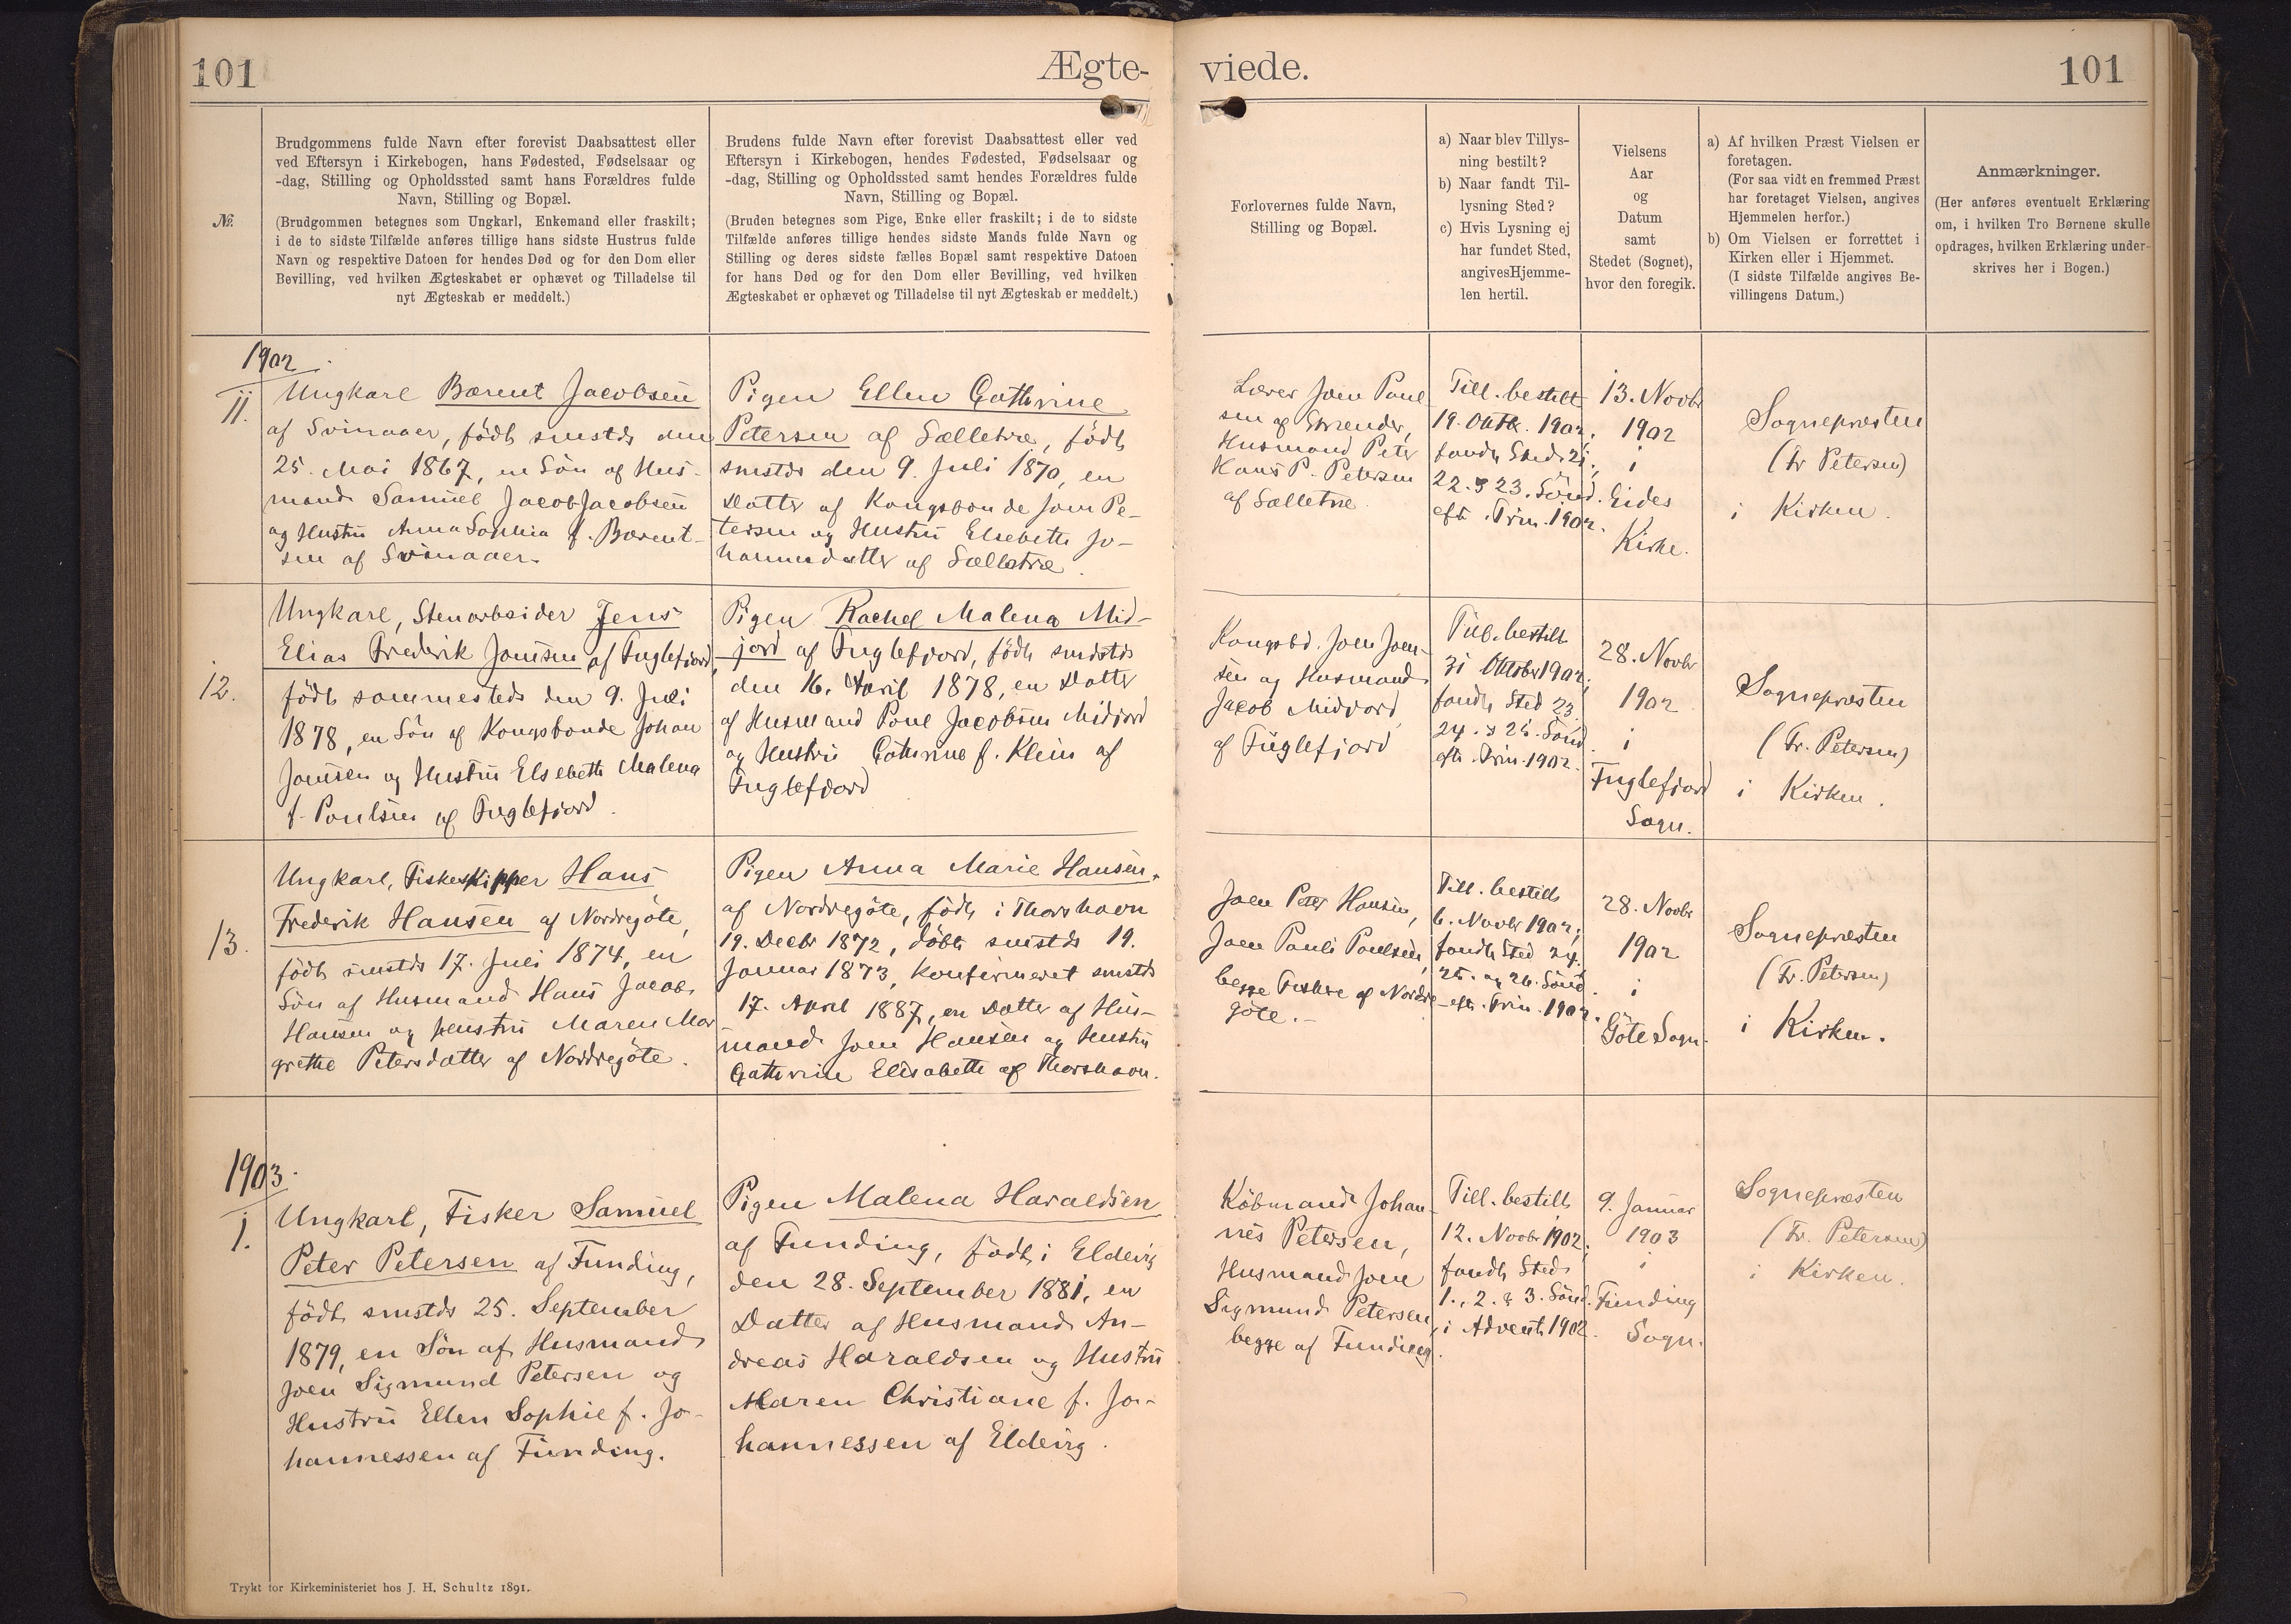 101
Ægte-
viede.
101
№.
Brudgommens fulde Navn efter forevist Daabsattest eller
ved Eftersyn i Kirkebogen, hans Fødested, Fødselsaar og
-dag, Stilling og Opholdssted samt hans Forældres fulde
Navn, Stilling og Bopæl.
(Brudgommen betegnes som Ungkarl, Enkemand eller fraskilt;
i de to sidste Tilfælde anføres tillige hans sidste Hustrus fulde
Navn og respektive Datoen for hendes Død og for den Dom eller
Bevilling, ved hvilken Ægteskabet er ophævet og Tilladelse til
nyt Ægteskab er meddelt.)
Brudens fulde Navn efter forevist Daabsattest eller ved
Eftersyn i Kirkebogen, hendes Fødested, Fødselsaar og
-dag, Stilling og Opholdssted samt hendes Forældres fulde
Navn, Stilling og Bopæl.
(Bruden betegnes som Pige, Enke eller fraskilt; i de to sidste
Tilfælde anføres tillige hendes sidste Mands fulde Navn og
Stilling og deres sidste fælles Bopæl samt respektive Datoen
for hans Død og for den Dom eller Bevilling, ved hvilken
Ægteskabet er ophævet og Tilladelse til nyt Ægteskab er meddelt.)
Forlovernes fulde Navn,
Stilling og Bopæl.
a) Naar blev Tillys-
ning bestilt?
b) Naar fandt Til-
lysning Sted?
c) Hvis Lysning ej
har fundet Sted,
angives Hjemme-
len hertil.
Vielsens
Aar
og
Datum
samt
Stedet (Sognet),
hvor den foregik.
a) Af hvilken Præst Vielsen er
foretagen.
(For saa vidt en fremmed Præst
har foretaget Vielsen, angives
Hjemmelen herfor.)
b) Om Vielsen er forrettet i
Kirken eller i Hjemmet.
(I sidste Tilfælde angives Be-
villingens Datum.)
Anmærkninger.
(Her anføres eventuelt Erklæring
om, i hvilken Tro Børnene skulle
opdrages, hvilken Erklæring under-
skrives her i Bogen.)
1902
11.
Ungkarl Barent Jacobsen
af Svinaaer, født smstds den
25. Mai 1867, en Søn af Hus-
mand Samuel Jacob Jacobsen
og Hustru Anna Sophia f. Barent-
sen af Svinaaer.
Pigen Ellen Cathrine
Petersen af Sælletræ, født
smstds den 9. Juli 1870, en
Datter af Kongsbonde Joen Pe-
tersen og Hustru Elsebeth Jo-
hannesdatter af Sælletræ.
Lærer Joen Poul
sen af
Husmand Peter
Hans P. Petersen
af Sælletræ
Till. bestilt
19. Oktb. 1902,
fandt Sted 21,
22. & 23. Sönd.
eft. Trin. 1902.
13. Novbr
1902
i
Eides
Kirke.
Sognepræsten
(Fr Petersen)
i Kirken.
12.
Ungkarl, Stenarbeider Jens
Elias Frederik Joensen af Fuglefjord,
födt sammesteds den 9. Juli
1878, en Sön af Kongsbonde Johan
Joensen og Hustru Elsebeth Malena
f. Poulsen af Fuglefjord.
Pigen Rachel Malena Mid-
jord af Fuglefjord, födt smstds
den 16. April 1878, en Datter
af Husmand Poul Jacobsen Midjord
og Hustru Cathrine f. Klein af
Fuglefjord
Kongsbd. Joen Joen-
sen og Husmand
Jacob Midjord
af Fuglefjord
Till. bestilt
31 Oktober 1902,
fandt Sted 23
24. & 25. Sönd.
eft. Trin. 1902.
28. Novbr
1902
i
Fuglefjord
Sogn.
Sognepræsten
(Fr. Petersen)
i Kirken.
13.
Ungkarl, Fiskeskipper Hans
Frederik Hansen af Nordregöte,
födt smstds 17. Juli 1874, en
Sön af Husmand Hans Jacob
Hansen og Hustru Maren Mar
grethe Petersdatter af Nordregöte.
Pigen Anna Marie Hansen,
af Nordregöte, födt i Thorshavn
19. Decbr 1872, döbt smstds 19.
Januar 1873, konfirmeret smstds
17. April 1887, en Datter af Hus-
mand Joen Hansen og Hustru
Cathrine Elisabeth af Thorshavn.
Joen Peter Hansen,
Joen Pauli Poulsen,
begge Fiskere af Nordre
göte.-
Till. bestilt
6. Novbr 1902;
fandt Sted 24,
25. og 26. Sönd.
eft. Trin. 1902.
28. Novbr
1902
i
Göte Sogn.
Sognepræsten
(Fr. Petersen)
i Kirken.
1903.
1.
Ungkarl, Fisker Samuel
Peter Petersen af Funding,
födt smstds 25. September
1879, en Sön af Husmand
Joen Sigmund Petersen og
Hustru Ellen Sophie f. Jo-
hannessen af Funding.
Pigen Malena Haraldsen
af Funding, födt i Eldevig
den 28. September 1881, en
Datter af Husmand An-
dreas Haraldsen og Hustru
Maren Christiane f. Jo-
hannessen af Eldevig.
Köbmand Johan-
nes Petersen,
Husmand Joen
Sigmund Petersen,
begge af Funding.
Till. bestilt
12. Novbr 1902,
fandt Sted
1., 2. & 3. Sönd.
i Advent 1902.
9. Januar
1903
i
Funding
Sogn.
Sognepræsten
(Fr. Petersen)
i Kirken.
Trykt for Kirkeministeriet hos J. H. Schultz 1891.